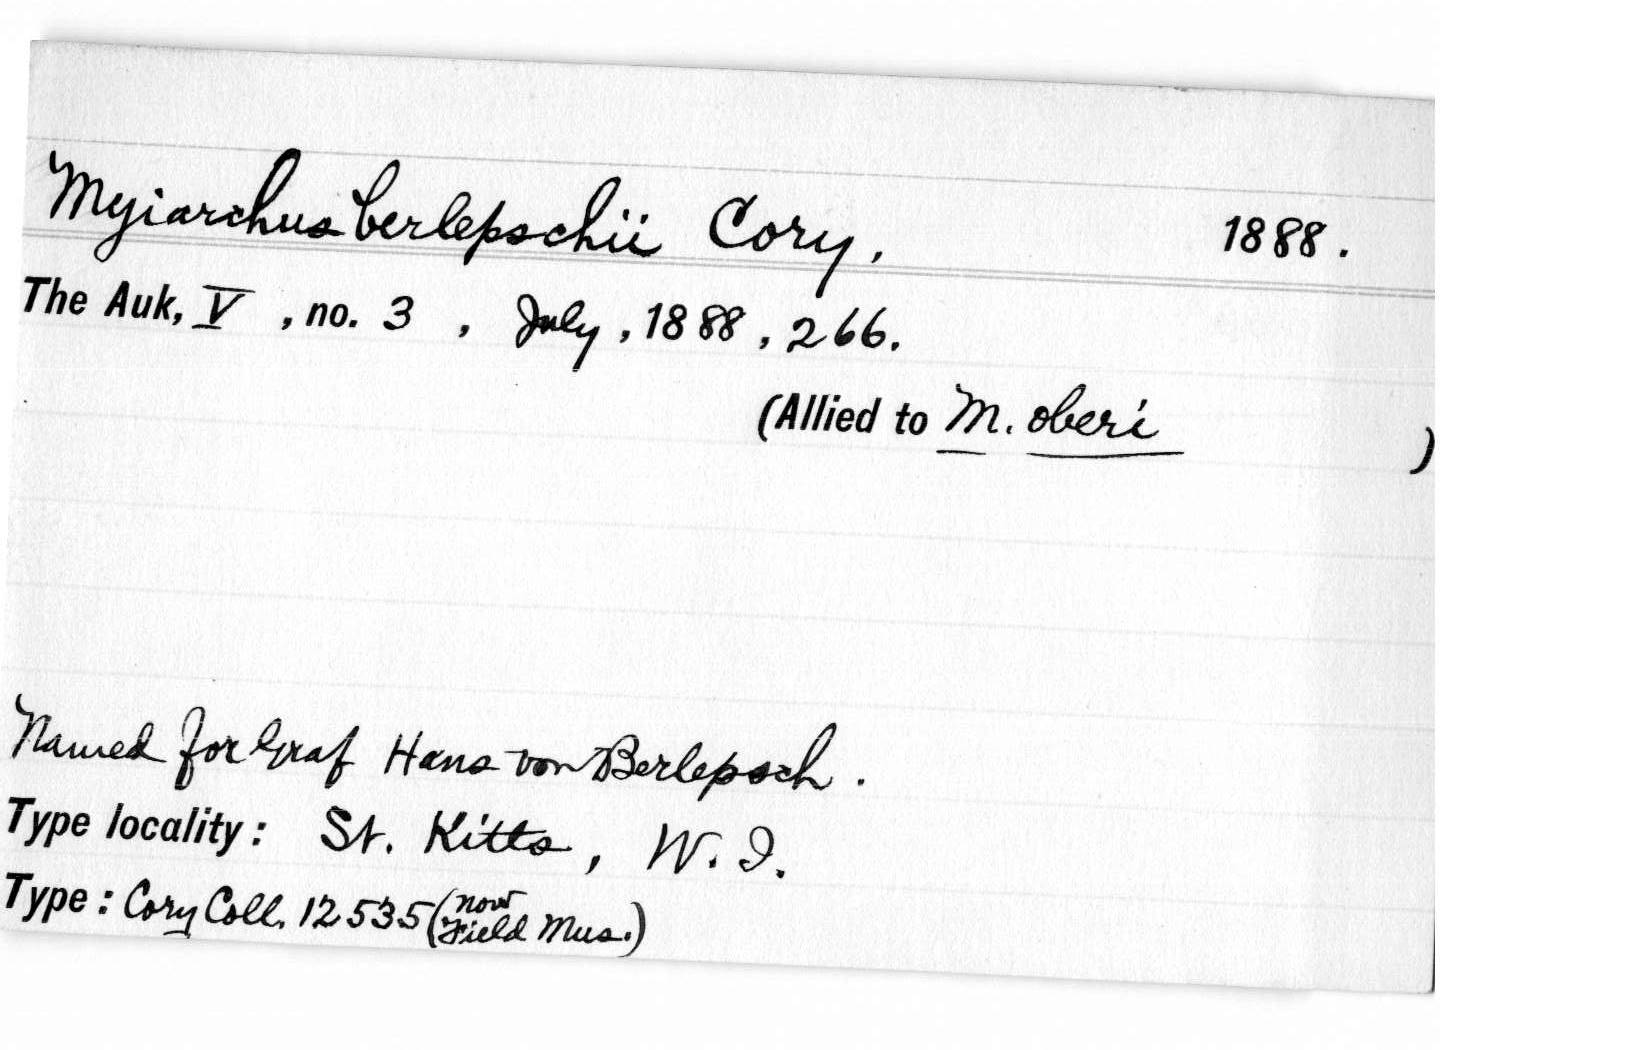 Myiarchus berlepschii Cory, 1888.
The Auk, V, no. 3, July, 1888, 266.
(Allied to M. oberi )
Named for Graf Hans von Berlepsch.
Type locality: St. Kitts, W. I.
Type: Cory Coll. 12535 (now Field Mus.)